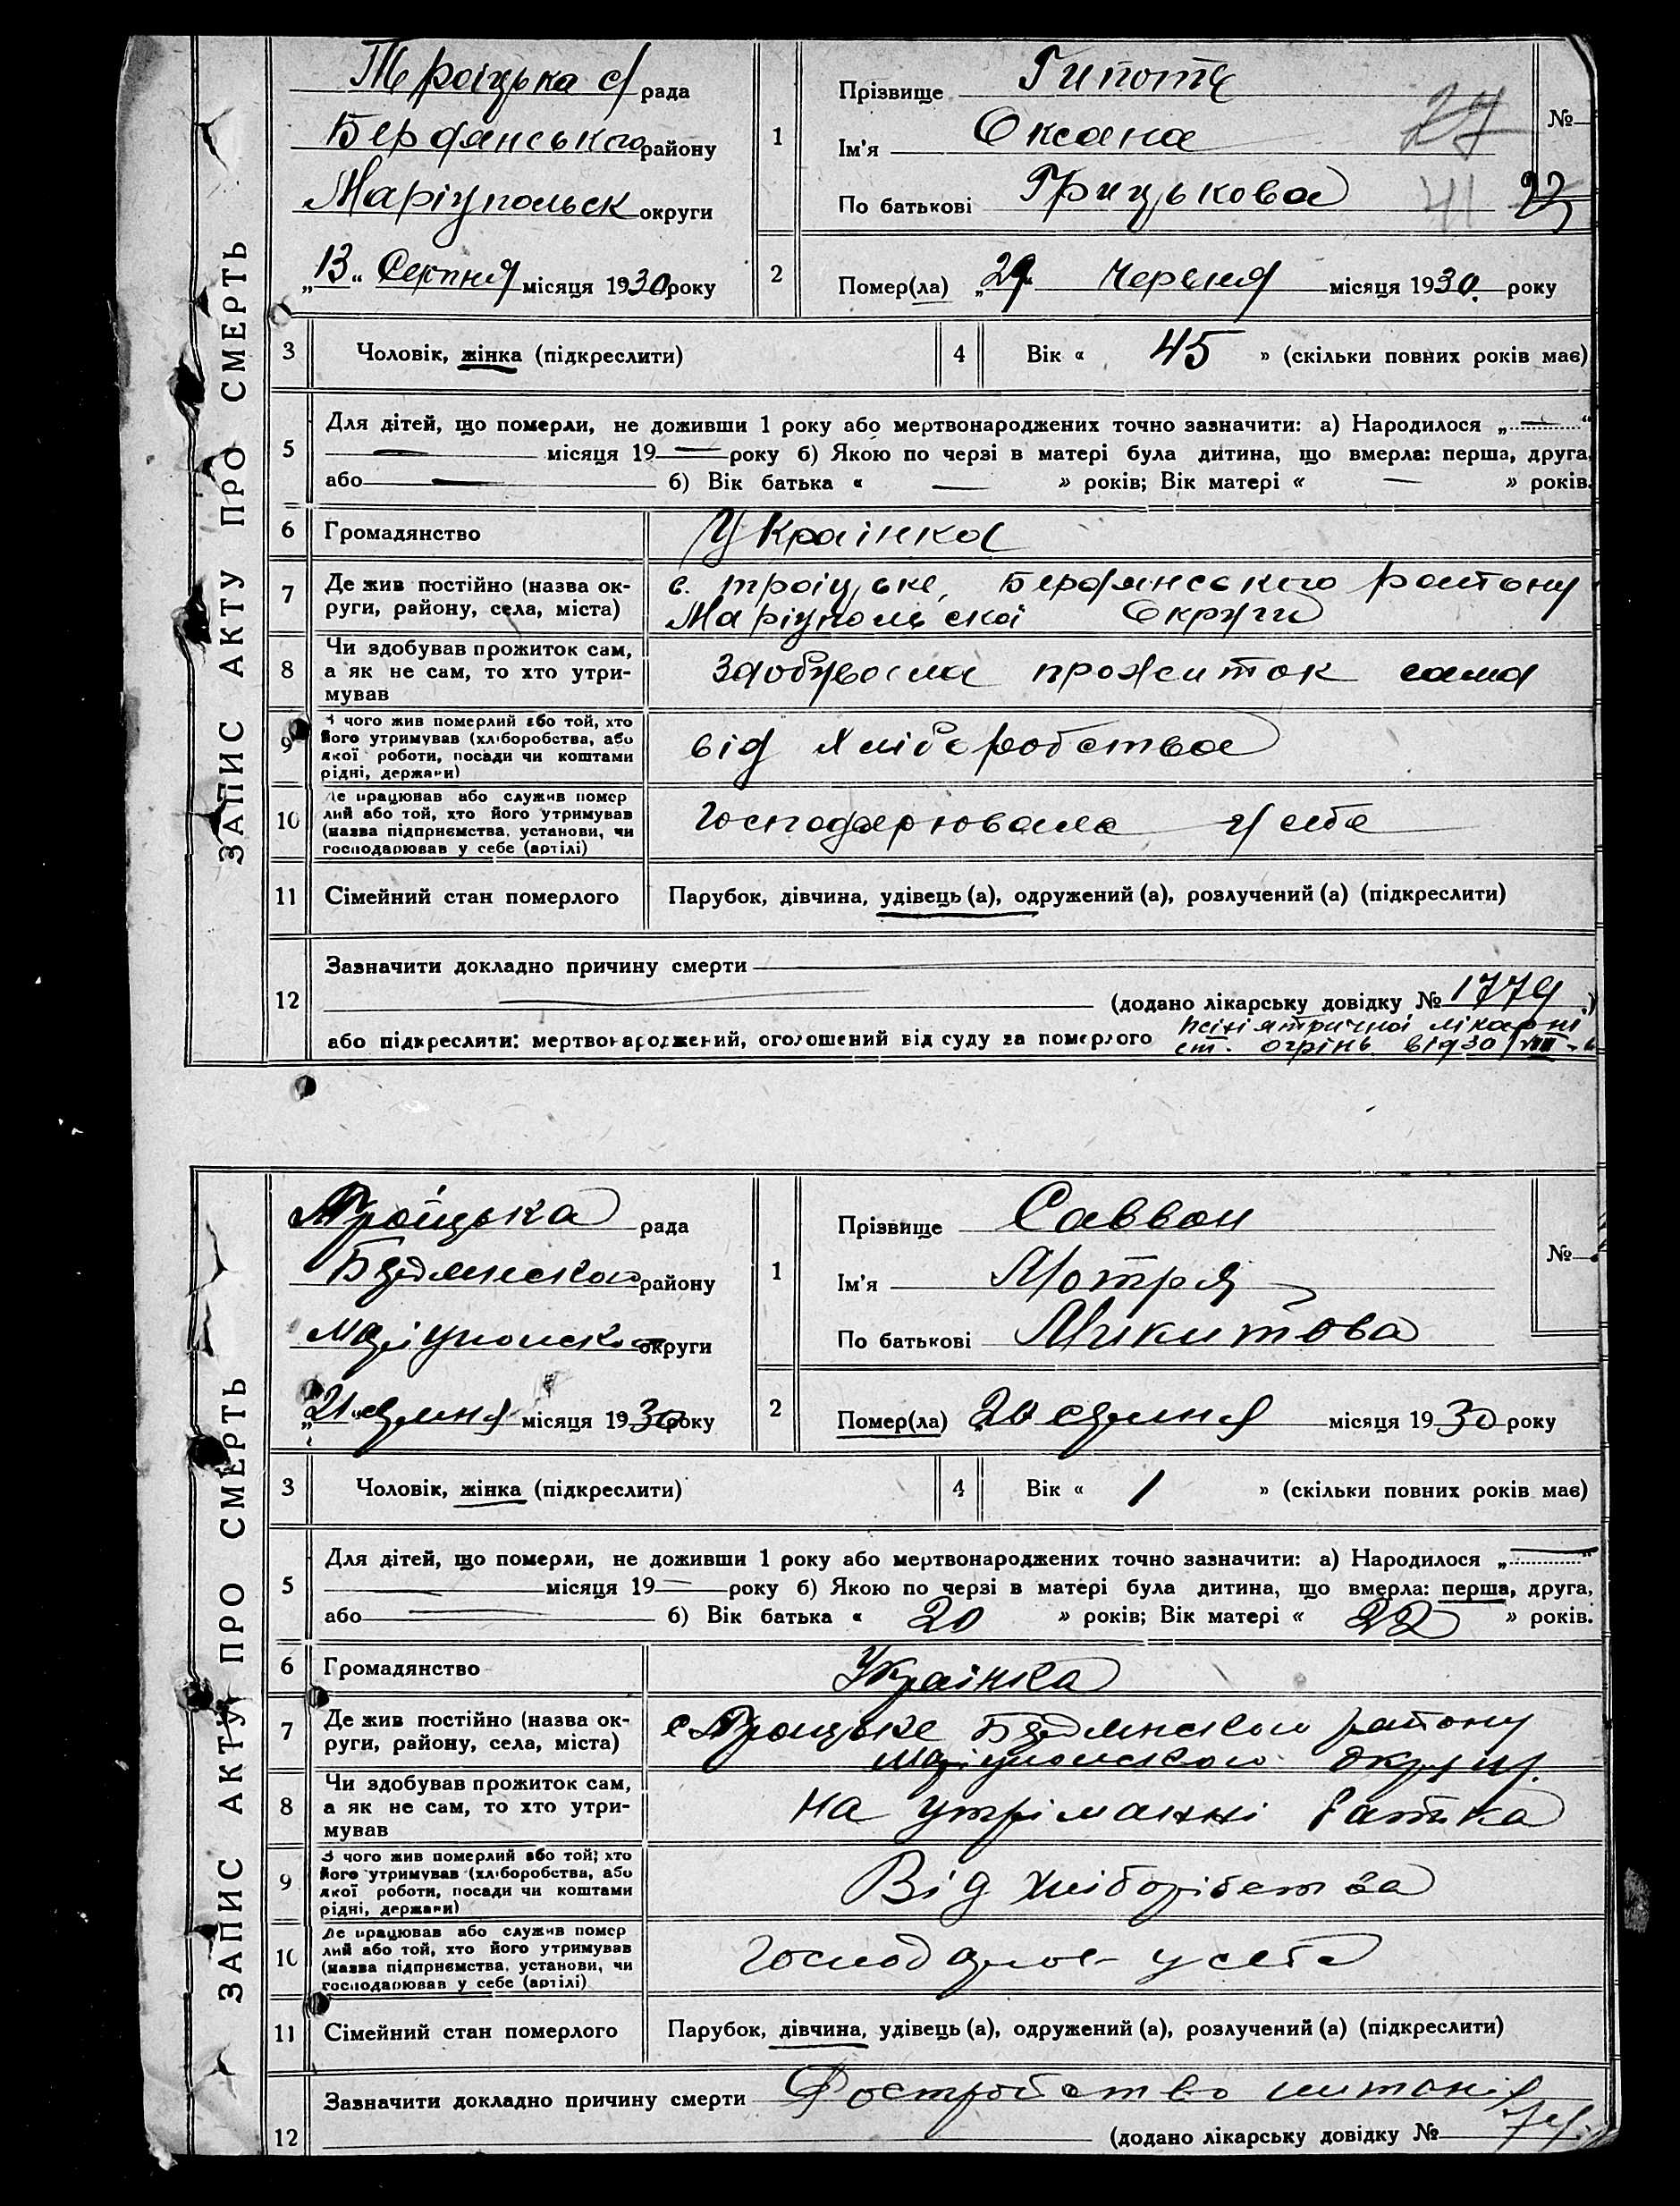 ЗАПИС АКТУ ПРО СМЕРТЬ
Троіцька с/рада
Бердянського району
Маріупольск округи
„13“ Серпня місяця 1930 року
1
Прізвище Гипоть
Ім'я Оксана
По батькові Грицькова
27
41
№
2
Помер(ла) „29 Червня місяця 1930. року
3 Чоловік, жінка (підкреслити)
4 Вік « 45 » (скільки повних років має)
5 Для дітей, що померли, не доживши 1 року або мертвонароджених точно зазначити: а) Народилося „ — “
— місяця 19 — року б) Якою по черзі в матері була дитина, що вмерла: перша, друга,
або — б) Вік батька « — » років; Вік матері « — » років.
6 Громадянство Українка
7 Де жив постійно (назва округи, району, села, міста) с. троіцьке, Бердянського району
Маріупольскої Округи
8 Чи здобував прожиток сам,
а як не сам, то хто утри-
мував
Здобувала прожиток сама
9 З чого жив померлий або той, хто
його утримував (хліборобства, або
якої роботи, посади чи коштами
рідні, держави)
від хліборобства
10 Де працював або служив помер
лий або той, хто його утримував
(назва підприємства, установи, чи
господарював у себе (артілі)
Господарювала у себе
11 Сімейний стан померлого Парубок, дівчина, удівець (а), одружений (а), розлучений (а) (підкреслити)
12 Зазначити докладно причину смерти —
(додано лікарську довідку № 1779.)
або підкреслити: мертвонароджений, оголошений від суду за померлого псіхіятричної лікарні
ст. огрінь від 30/VIII
ЗАПИС АКТУ ПРО СМЕРТЬ
Троїцька рада
Бердянского району
Маріупольско округи
„21“ серпня місяця 1930 року
1
Прізвище Саввон
Ім'я Мотря
По батькові Микитова
№
2
Помер(ла) 20 серпня місяця 1930 року
3 Чоловік, жінка (підкреслити)
4 Вік « 1 » (скільки повних років має)
5 Для дітей, що померли, не доживши 1 року або мертвонароджених точно зазначити: а) Народилося „ — “
— місяця 19 — року б) Якою по черзі в матері була дитина, що вмерла: перша, друга,
або — б) Вік батька « 20 » років; Вік матері « 22 » років.
6 Громадянство Українка
7 Де жив постійно (назва ок-
руги, району, села, міста)
с Троицьке Бердянского району
Маріупольского округи.
8 Чи здобував прожиток сам,
а як не сам, то хто утри-
мував
на утріманні батька
9 З чого жив померлий або той, хто
його утримував (хліборобства, або
якої роботи, посади чи коштами
рідні, держави)
Від хліборібства
10 Де працював або служив помер
лий або той, хто його утримував
(назва підприємства, установи, чи
господарював у себе (артілі)
Господарює у себе
11 Сімейний стан померлого Парубок, дівчина, удівець (а), одружений (а), розлучений (а) (підкреслити)
12 Зазначити докладно причину смерти
(додано лікарську довідку №